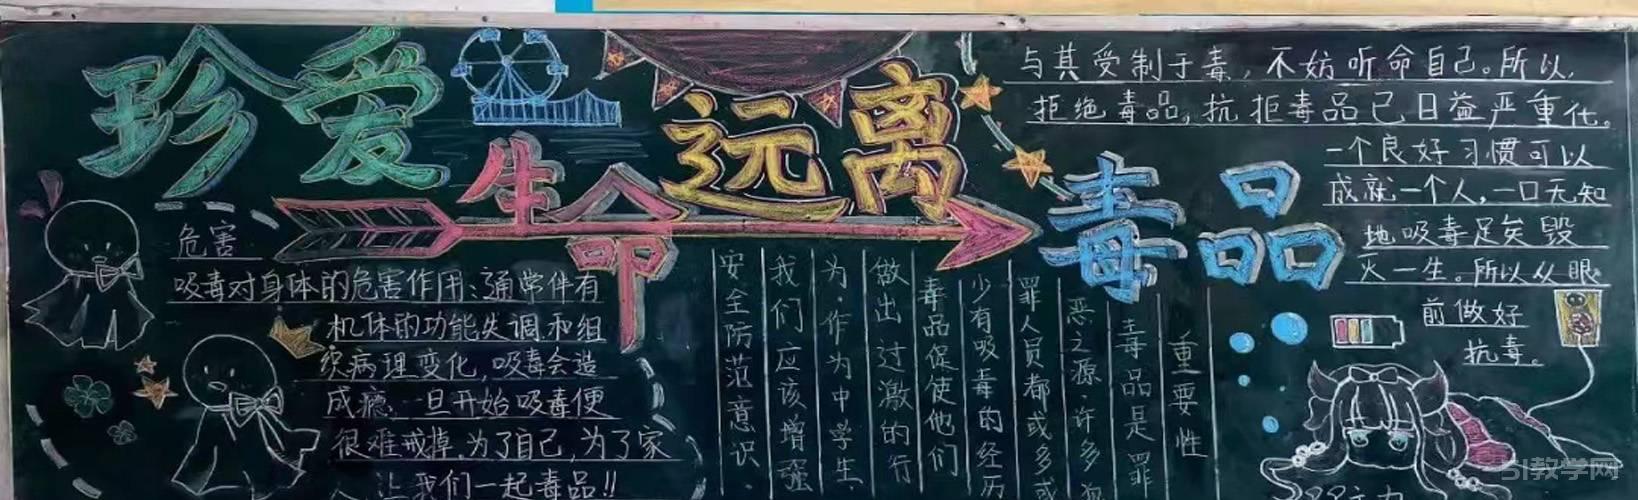 珍爱生命远离毒品
危害
吸毒对身体的危害作用:通常伴有
机体的功能失调和组
织病理变化,吸毒会造
成瘾,一旦开始吸毒便
很难戒掉.为了自己,为了家
让我们一起毒品!!
重要性
毒品是罪
恶之源.许多犯
罪人员都或多或
少有吸毒的经历
毒品促使他们
做出过激的行
为.作为中学生.
我们应该增强
安全防范意识.
与其受制于毒,不妨听命自己。所以,
拒绝毒品,抗拒毒品已日益严重化。
一个良好习惯可以
成就一个人,一口无知
地吸毒足矣毁
灭一生。所以从眼
前做好
抗毒。
51教学网